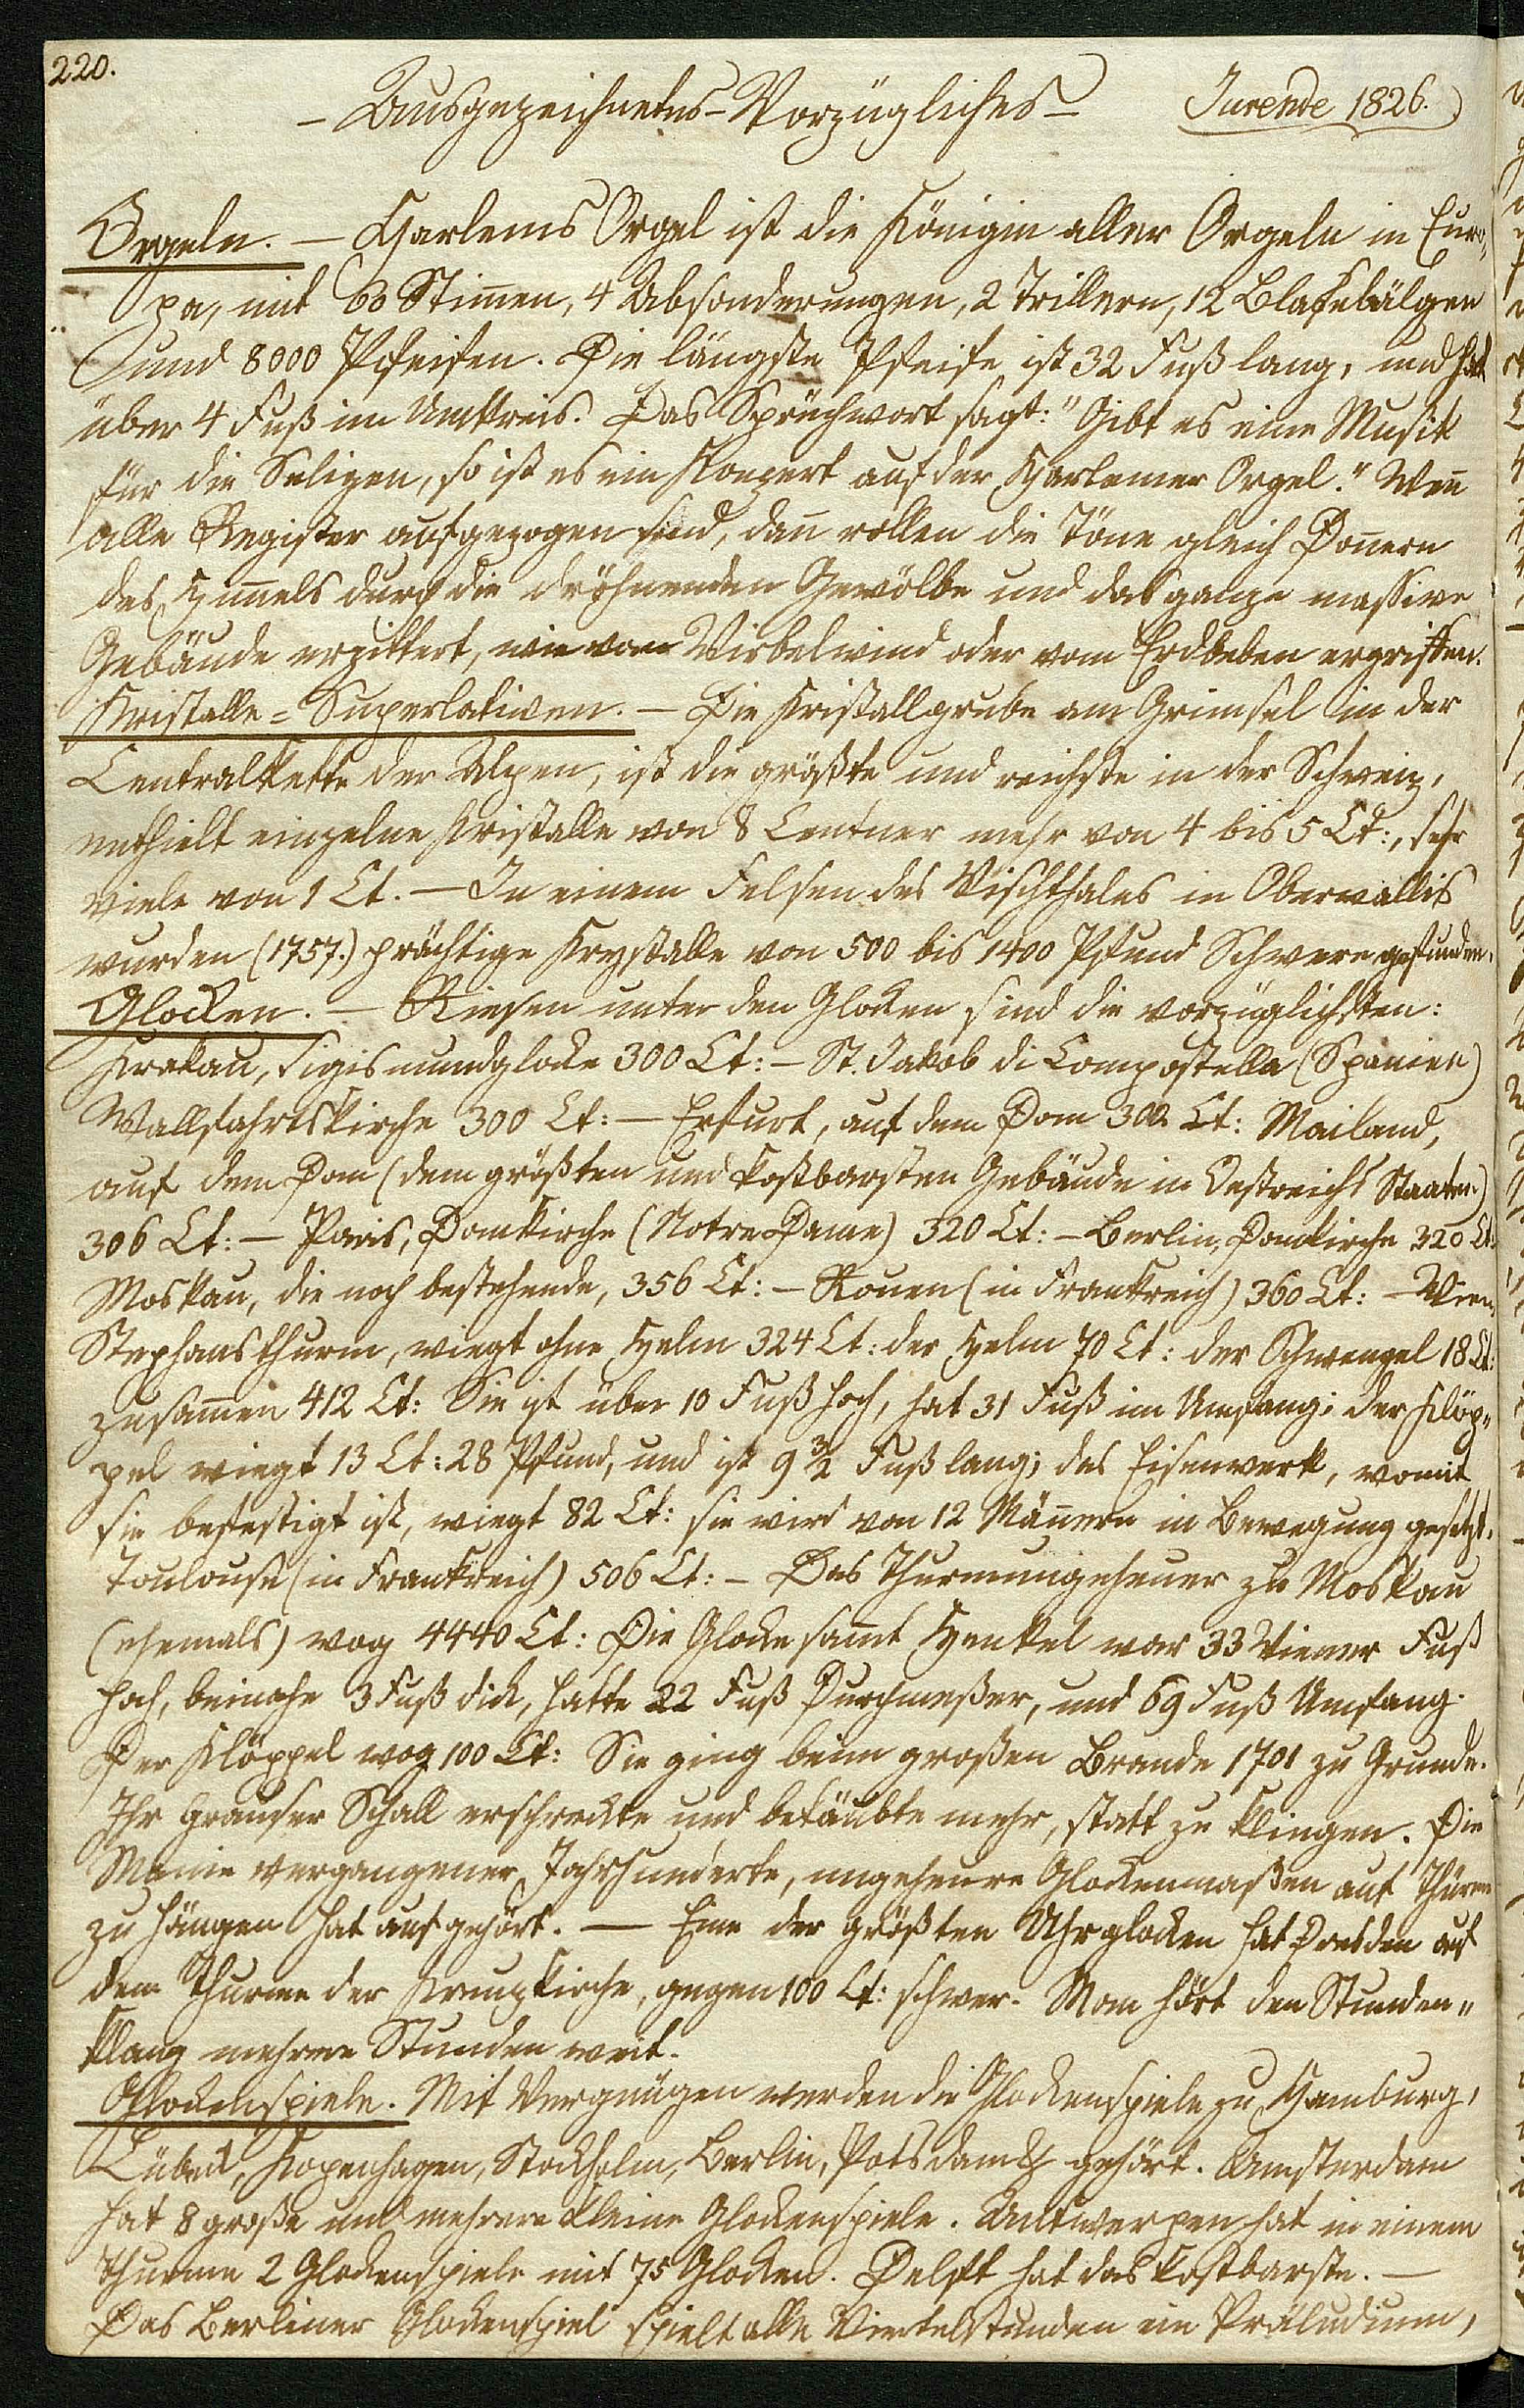 220.
– Ausgezeichnetes-Vorzügliches – Jurende 1826.
Orgeln. – Harlems Orgel ist die Königin aller Orgeln in Euro„
pa, mit 60 Stim̄en, 4 Absonderungen, 2 Trillern, 12 Blasebälgen
und 8000 Pfeifen. Die längste Pfeife ist 32 Fuß lang, und hat
über 4 Fuß im Umkreis. Das Sprüchwort sagt: "Gibt es eine Musik
für die Seligen, so ist es ein Konzert auf der Harlemer Orgel." Wen̄
alle Register aufgezogen sind, dan̄ rollen die Töne gleich Don̄ern
des Him̄els durch die dröhnenden Gewölbe und das ganze massive
Gebäude erzittert, wie vom Wirbelwind oder vom Erdbeben ergriffen.
Kristalle-Superlativen. – Die Kristallgrube am Grimsel in der
Centralkette der Alpen, ist die größte und reichste in der Schweiz,
enthielt einzelne Kristalle von 8 Centner mehr von 4 bis 5 Ct:, sehr
viele von 1 Ct. – In einem Felsen des Vischthales in Oberwallis
wurden (1757.) prächtige Krystalle von 500 bis 1400 Pfund Schwere gefunden.
Glocken. – Riesen unter den Glocken sind die vorzüglichsten:
Krakau, Sigismundglocke 300 Ct: – St. Jakob di Compostella (Spanien)
Wallfahrtskirche 300 Ct: – Erfurt, auf dem Dom 302 Ct: Mailand,
auf dem Dom (dem größten und kostbarsten Gebäude in Oestreichs Staaten)
306 Ct: – Paris, Domkirche (Notre Dame) 320 Ct: – Berlin, Domkirche 320 Ct:
Moskau, die noch bestehende, 356 Ct: – Rouen (in Frankreich) 360 Ct: – Wien,
Stephansthurm, wiegt ohne Helm 324 Ct: der Helm 70 Ct: der Schwengel 18 Ct:
zusam̄en 412 Ct: Sie ist über 10 Fuß hoch, hat 31 Fuß im Umfang; der Klöp„
pel wiegt 13 Ct: 28 Pfund, und ist 9 3/2 Fuß lang; das Eisenwerk, womit
sie befestigt ist, wiegt 82 Ct: sie wird von 12 Män̄ern in Bewegung gesetzt.
Toulouse (in Frankreich) 506 Ct: – Das Thurmungeheuer zu Moskau
(ehemals) wog 4440 Ct: Die Glocke sam̄t Henkel war 33 Wiener Fuß
hoch, beinahe 3 Fuß dick, hatte 22 Fuß Durchmeßer, und 69 Fuß Umfang.
Der Klöppel wog 100 Ct: Sie ging beim großen Brande 1701 zu Grunde.
Ihr grauser Schall erschreckte und betäubte mehr, statt zu klingen. Die
Manie vergangener Jahrhunderte, ungeheure Glockenmaßen auf Thürme
zu hängen hat aufgehört. – Eine der größten Uhrglocken hat Dresden auf
dem Thurme der Kreuzkirche, gegen 100 Ct: schwer. Man hört den Stunden„
klang mehrere Stunden weit.
Glockenspiele. Mit Vergnügen werden die Glockenspiele zu Hamburg,
Lübeck, Kopenhagen, Stockholm, Berlin, Potsdam &c gehört. Amsterdam
hat 8 große und mehrere kleine Glockenspiele. Antwerpen hat in einem
Thurme 2 Glockenspiele mit 75 Glocken. Delft hat das kostbarste. –
Das Berliner Glockenspiel spielt alle Viertelstunden ein Präludium,